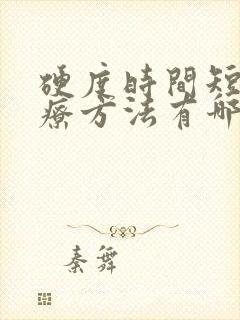 硬度時間短
療方法有哪
秦舞